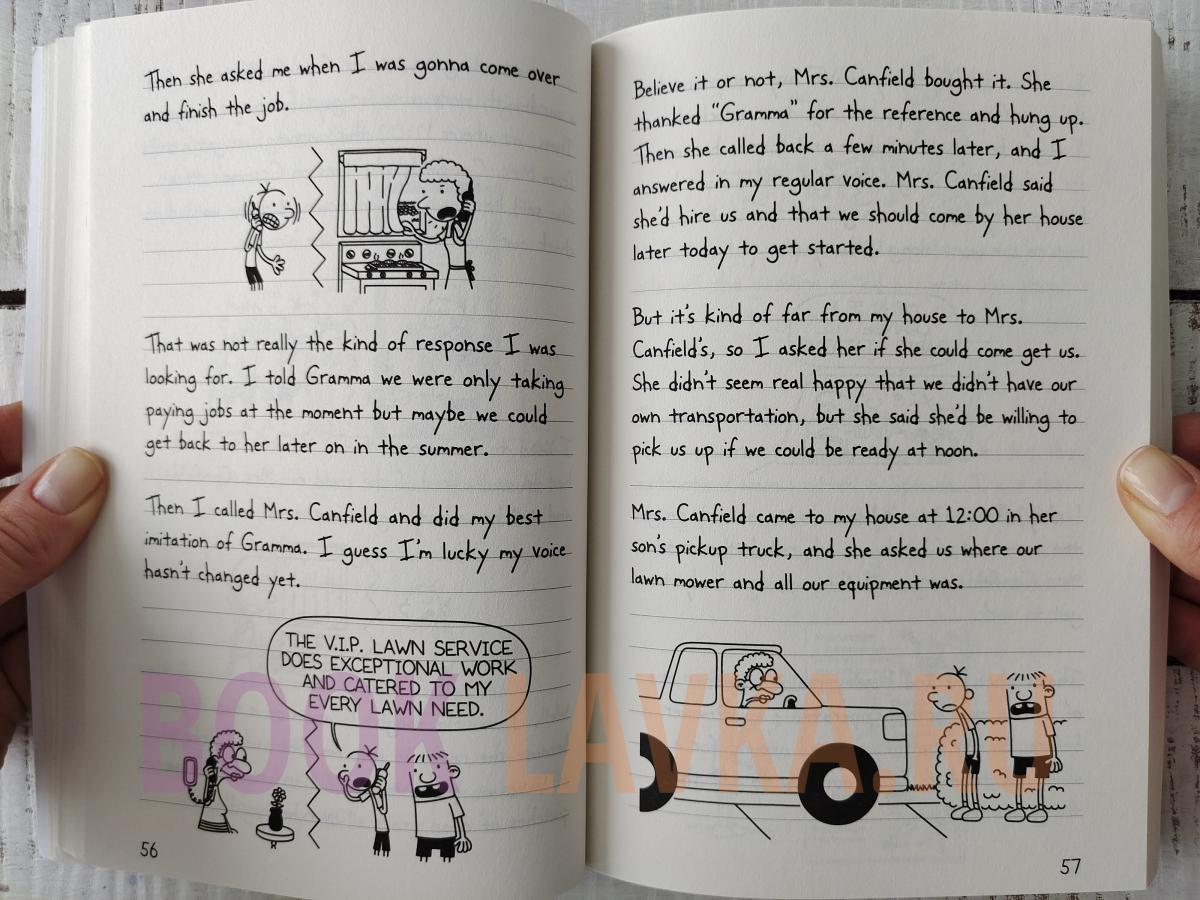 Then she asked me when I was gonna come over
and finish the job.
That was not really the kind of response I was
looking for. I told Gramma we were only taking
paying jobs at the moment but maybe we could
get back to her later on in the summer.
Then I called Mrs. Canfield and did my best
imitation of Gramma. I guess I'm lucky my voice
hasn't changed yet.
THE V.I.P. LAWN SERVICE
DOES EXCEPTIONAL WORK
AND CATERED TO MY
EVERY LAWN NEED.
56
Believe it or not, Mrs. Canfield bought it. She
thanked “Gramma” for the reference and hung up.
Then she called back a few minutes later, and I
answered in my regular voice. Mrs. Canfield said
she'd hire us and that we should come by her house
later today to get started.
But it's kind of far from my house to Mrs.
Canfield's, so I asked her if she could come get us.
She didn't seem real happy that we didn't have our
own transportation, but she said she'd be willing to
pick us up if we could be ready at noon.
Mrs. Canfield came to my house at 12:00 in her
son's pickup truck, and she asked us where our
lawn mower and all our equipment was.
57
BOOK LAVKA.RU